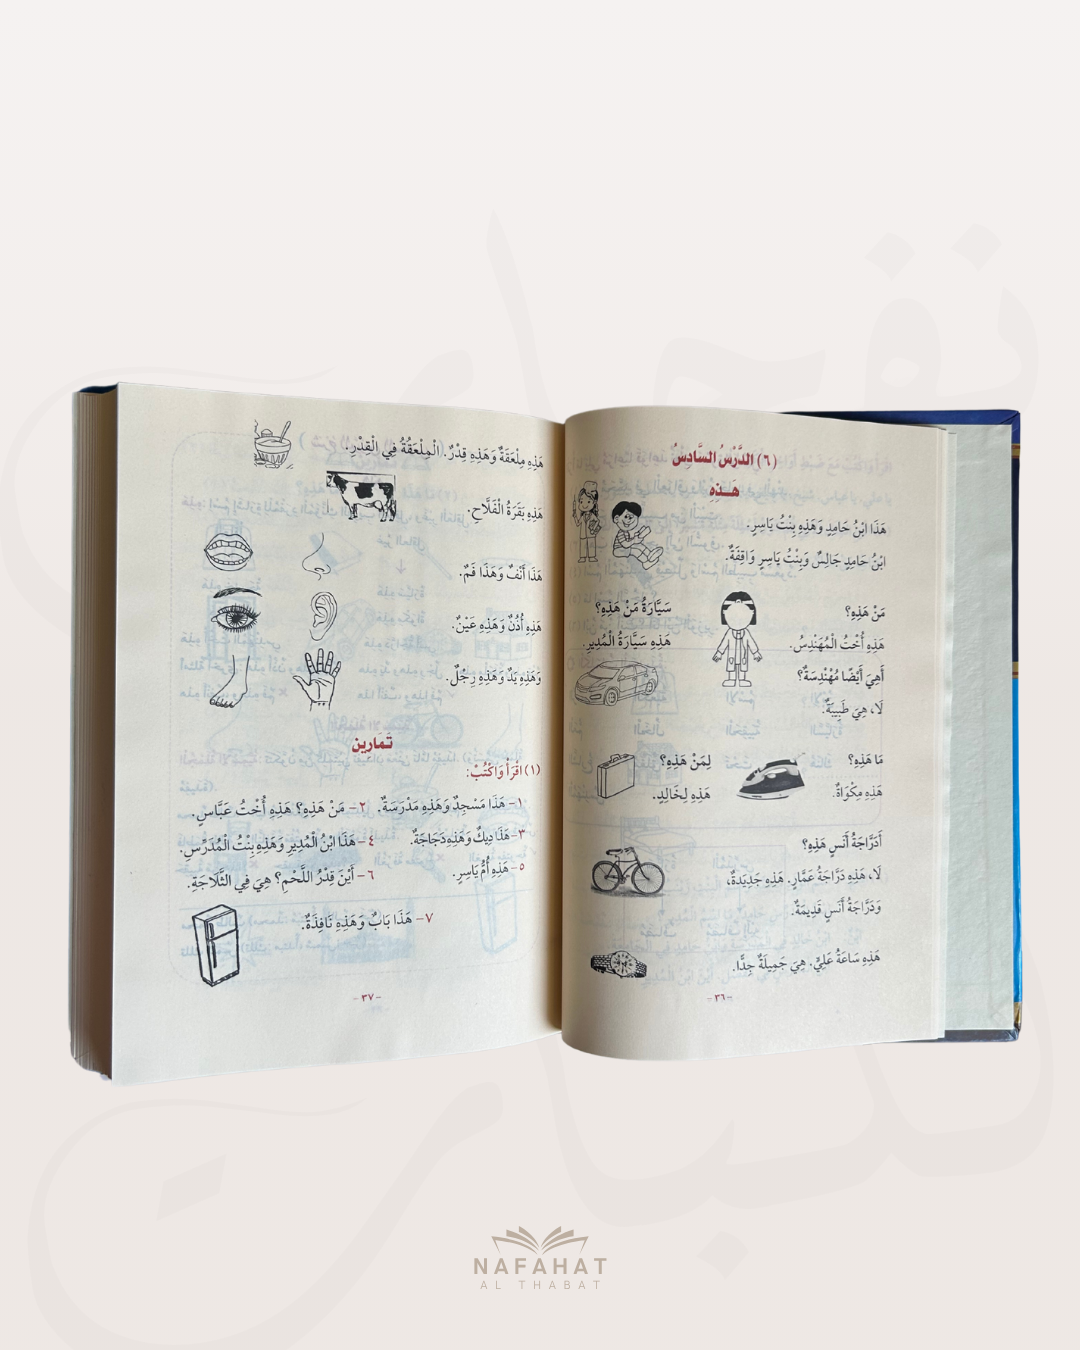 (٦) الدَّرْسُ السَّادِسُ
هَـذِهِ
هَذَا ابْنُ حَامِدٍ وَهَذِهِ بِنْتُ يَاسِرٍ.
ابْنُ حَامِدٍ جَالِسٌ وَبِنْتُ يَاسِرٍ وَاقِفَةٌ.
مَنْ هَذِهِ؟
هَذِهِ أُخْتُ الْمُهَنْدِسُ.
أَهِيَ أَيْضًا مُهَنْدِسَةٌ؟
لَا، هِيَ طَبِيبَةٌ.
سَيَّارَةُ مَنْ هَذِهِ؟
هَذِهِ سَيَّارَةُ الْمُدِيرِ.
مَا هَذِهِ؟
هَذِهِ مِكْوَاةٌ.
لِمَنْ هَذِهِ؟
هَذِهِ لِخَالِدٍ.
أَدَرَّاجَةُ أَنَسٍ هَذِهِ؟
لَا، هَذِهِ دَرَّاجَةُ عَمَّارٍ. هَذِهِ جَدِيدَةٌ،
وَدَرَّاجَةُ أَنَسٍ قَدِيمَةٌ.
هَذِهِ سَاعَةُ عَلِيٍّ. هِيَ جَمِيلَةٌ جِدًّا.
-٣٦-
هَذِهِ مِلْعَقَةٌ وَهَذِهِ قِدْرٌ. الْمِلْعَقَةُ فِي الْقِدْرِ.
هَذِهِ بَقَرَةُ الْفَلَّاحِ.
هَذَا أَنْفٌ وَهَذَا فَمٌ.
هَذِهِ أُذُنٌ وَهَذِهِ عَيْنٌ.
وَهَذِهِ يَدٌ وَهَذِهِ رِجْلٌ.
تَمَارين
(١) اقْرَأْ وَاكْتُبْ:
١- هَذَا مَسْجِدٌ وَهَذِهِ مَدْرَسَةٌ. ٢- مَنْ هَذِهِ؟ هَذِهِ أُخْتُ عَبَّاسٍ.
٣- هَذَا دِيكٌ وَهَذِهِ دَجَاجَةٌ. ٤- هَذَا ابْنُ الْمُدِيرِ وَهَذِهِ بِنْتُ الْمُدَرِّسِ.
٥- هَذِهِ أُمُّ يَاسِرٍ. ٦- أَيْنَ قِدْرُ اللَّحْمِ؟ هِيَ فِي الثَّلَّاجَةِ.
٧- هَذَا بَابٌ وَهَذِهِ نَافِذَةٌ.
-٣٧-
NAFAHAT
AL THABAT